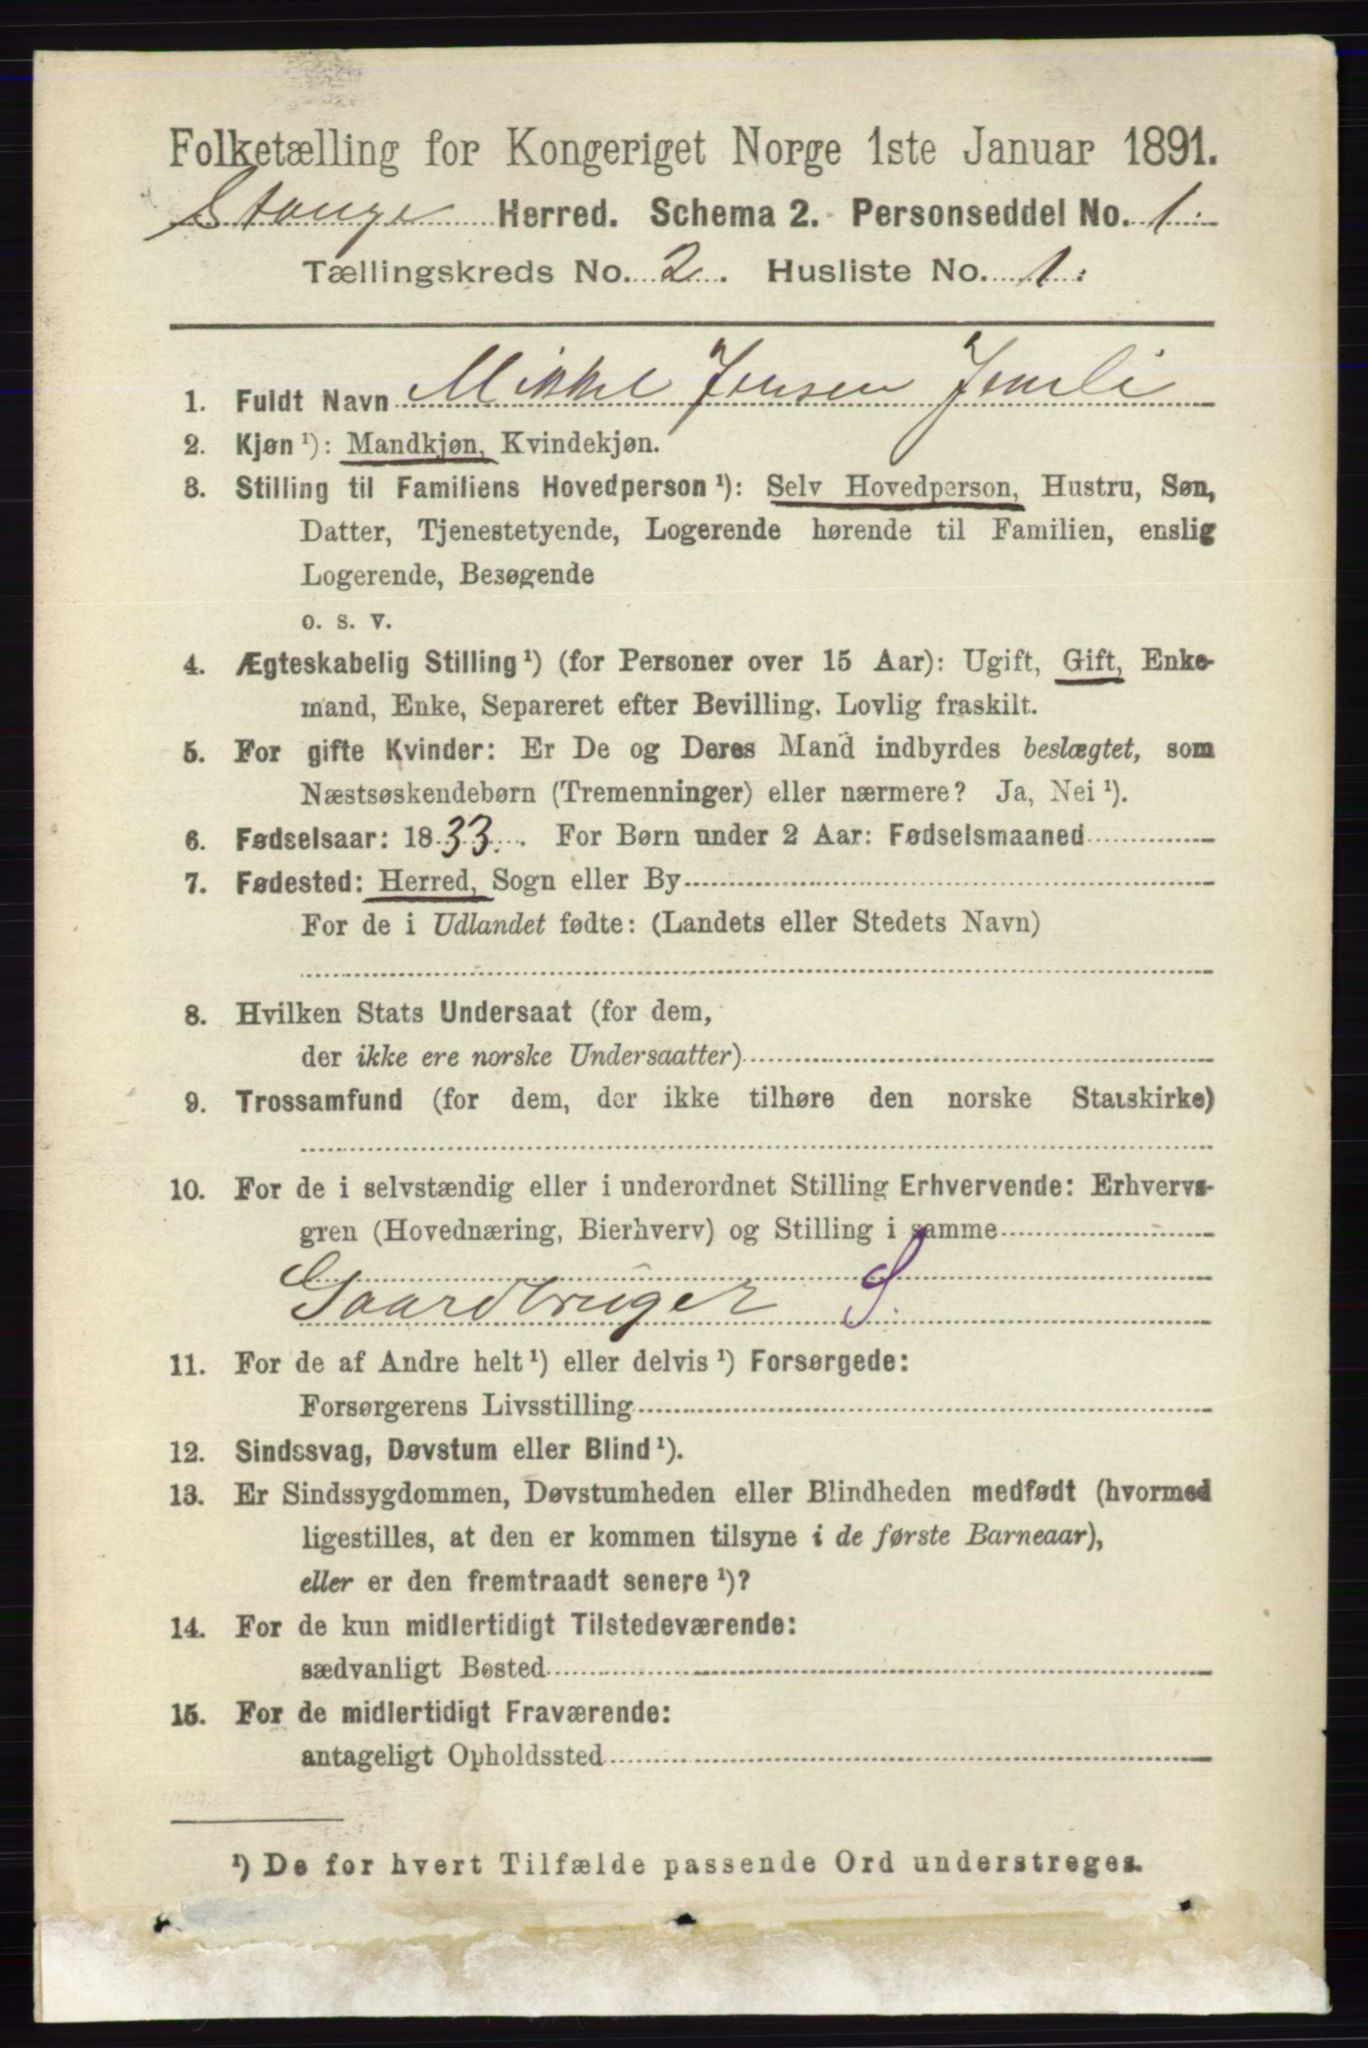 Folketælling for Kongeriget Norge 1ste Januar 1891.
Stange Herred. Schema 2. Personseddel No. 1.
Tællingskreds No. 2. Husliste No. 1.
1. Fuldt Navn Mikkel Jensen
2. Kjøn ¹): Mandkjøn, Kvindekjøn.
3. Stilling til Familiens Hovedperson ¹): Selv Hovedperson, Hustru, Søn,
Datter, Tjenestetyende, Logerende hørende til Familien, enslig
Logerende, Besøgende
o. s. v.
4. Ægteskabelig Stilling ¹) (for Personer over 15 Aar): Ugift, Gift, Enke-
mand, Enke, Separeret efter Bevilling. Lovlig fraskilt.
5. For gifte Kvinder: Er De og Deres Mand indbyrdes beslægtet, som
Næstsøskendebørn (Tremenninger) eller nærmere? Ja, Nei ¹).
6. Fødselsaar: 1833. For Børn under 2 Aar: Fødselsmaaned
7. Fødested: Herred, Sogn eller By
For de i Udlandet fødte: (Landets eller Stedets Navn)
8. Hvilken Stats Undersaat (for dem,
der ikke ere norske Undersaatter)
9. Trossamfund (for dem, der ikke tilhøre den norske Statskirke)
10. For de i selvstændig eller i underordnet Stilling Erhvervende: Erhvervs-
gren (Hovednæring, Bierhverv) og Stilling i samme
Gaardbruger S.
11. For de af Andre helt ¹) eller delvis ¹) Forsørgede:
Forsørgerens Livsstilling
12. Sindssvag, Døvstum eller Blind ¹).
13. Er Sindssygdommen, Døvstumheden eller Blindheden medfødt (hvormed
ligestilles, at den er kommen tilsyne i de første Barneaar),
eller er den fremtraadt senere ¹)?
14. For de kun midlertidigt Tilstedeværende:
sædvanligt Bosted
15. For de midlertidigt Fraværende:
antageligt Opholdssted
¹) De for hvert Tilfælde passende Ord understreges.